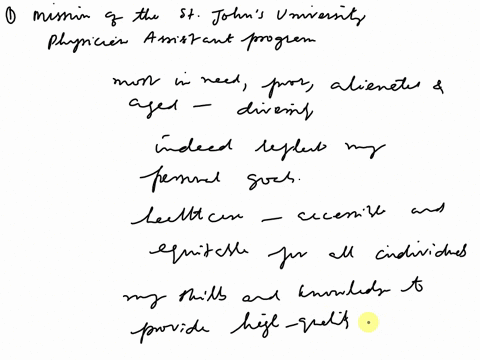 ① Mission of the St. John's University
Physician Assistant program
most in need, poor, alienated &
aged — diversity
indeed reflects my
personal goals.
healthcare — accessible and
equitable for all individuals
my skills and knowledge to
provide high-quality